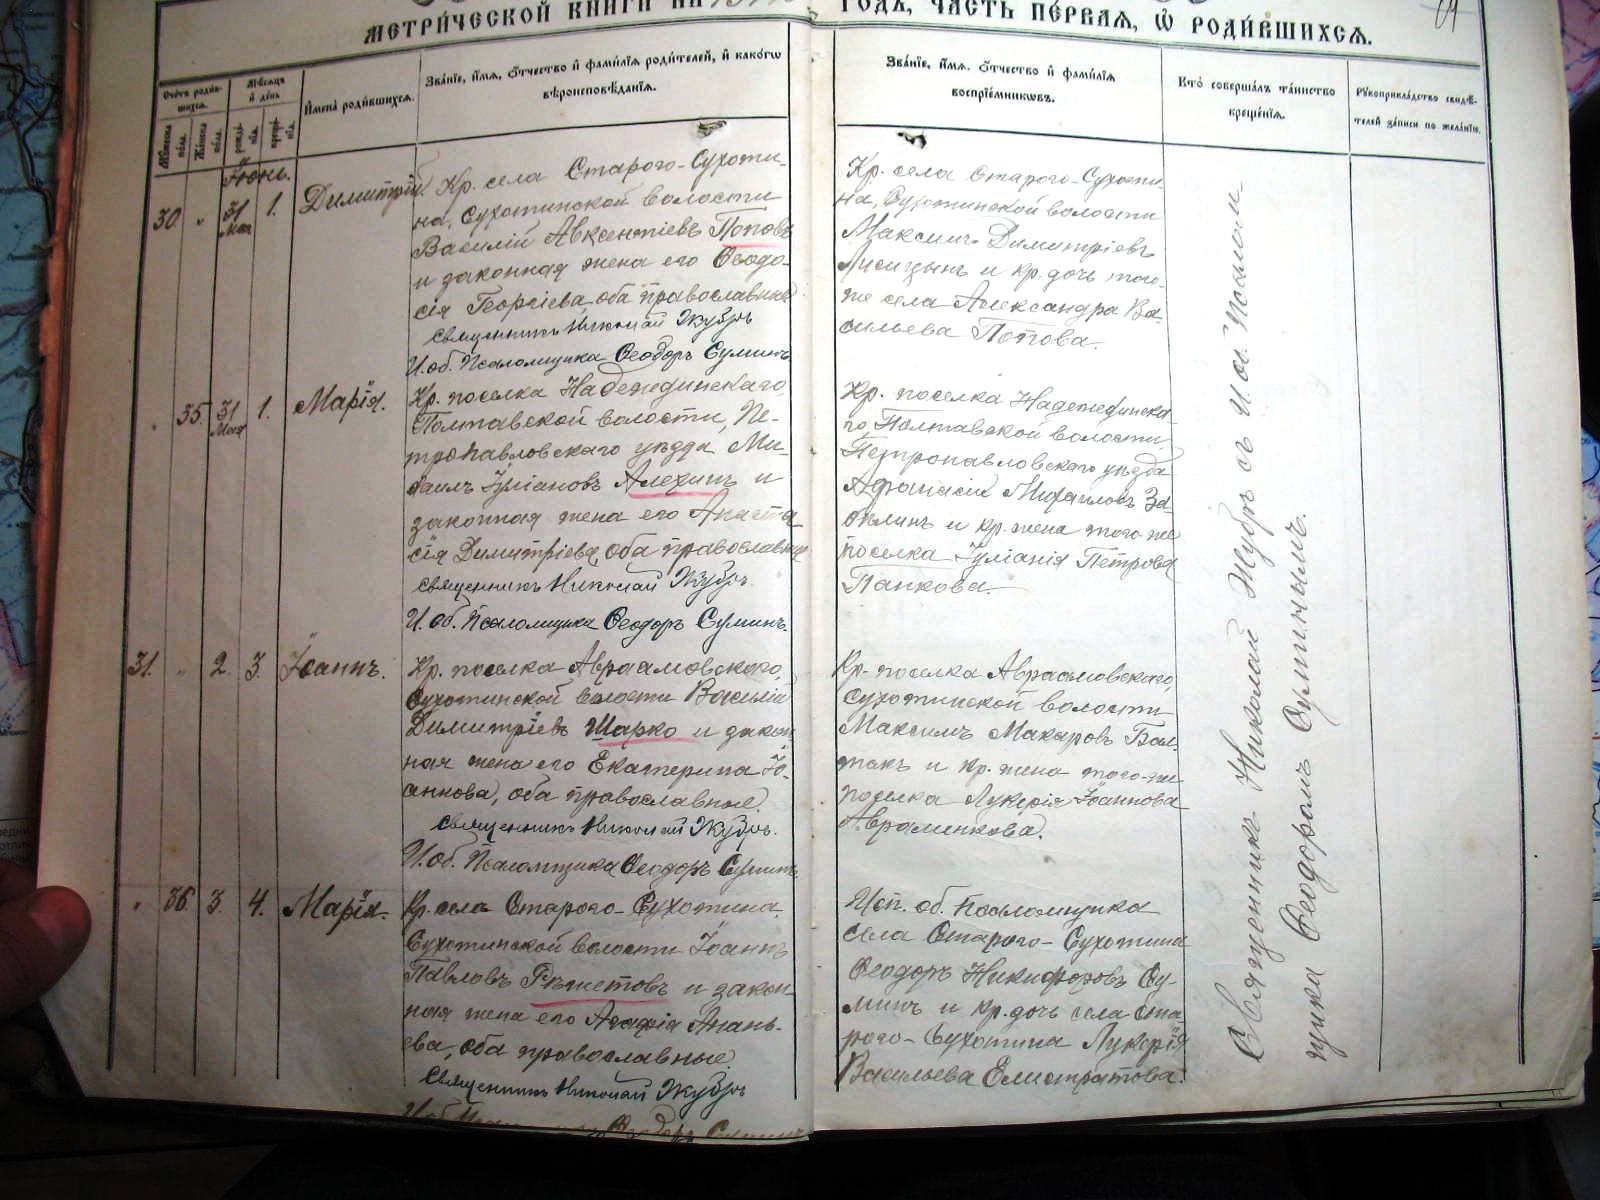 МЕТРИ́ЧЕСКОЙ КНИГИ НА
ГОДЪ, ЧАСТЬ ПЕ́РВАЯ, Ѿ РОДИ́ВШИХСЯ.
Счетъ роди́вшихся.
Мѣсяцъ и день
Мужеска пола.
Женска пола.
рожденія.
крещенія.
И́мена роди́вшихся.
Зва́ніе, и́мя, о́тчество и фами́лія роди́телей, и како́гѡ
вѣроисповѣ́данія.
Зва́ніе, и́мя, о́тчество и фами́лія
воспріе́мниковъ.
Кто̀ соверша́лъ та́инство
креще́нія.
Рꙋкоприкла́дство свидѣ́-
телей за́писи по жела́нію.
Іюнь.
30. „ 31 Мая 1. Димитрій.
Кр. села Старого-Сухоти-
на, Сухотинской волости
Василій Авксентіевъ Поповъ
и законная жена его Ѳеодо-
сія Георгіева, оба православные
Священникъ Николай Жубръ
И. об. Псаломщика Ѳеодоръ Суминъ
Кр. села Старого-Сухоти-
на, Сухотинской волости
Максимъ Димитріевъ
Лисицынъ и кр. дочь того-
же села Александра Ва-
сильева Попова.
„ 35. 31 Мая 1. Марія.
Кр. поселка Надеждинскаго,
Полтавской волости, Пе-
тропавловскаго уѣзда Ми-
хаилъ Іуліановъ Алехинъ и
законная жена его Анаста-
сія Димитріева, оба православные
Священникъ Николай Жубръ.
И. об. Псаломщика Ѳеодоръ Суминъ.
Кр. поселка Надеждинска-
го, Полтавской волости
Петропавловскаго уѣзда
Афанасій Михаиловъ
и кр. жена того-же
поселка Іуліанія Петрова
Панкова.
31. „ 2. 3. Іоаннъ.
Кр. поселка Авраамовского,
Сухотинской волости Василій
Димитріевъ Шарко и закон-
ная жена его Екатерина Іо-
аннова, оба православные
Священникъ Николай Жубръ.
И. об. Псаломщика Ѳеодоръ Суминъ
Кр. поселка Авраамовскаго,
Сухотинской волости
Максимъ Макаровъ
и кр. жена того-же
поселка Лукерія Іоаннова
Авраменкова.
„ 36. 3. 4. Марія.
Кр. села Старого-Сухотина,
Сухотинской волости Іоаннъ
Павловъ Рѣшетовъ и закон-
ная жена его Агафія Анань-
ева, оба православные.
Священникъ Николай Жубръ
И. об. Псаломщика Ѳеодоръ Суминъ
Исп. об. Псаломщика
села Старого-Сухотина
Ѳеодоръ Никифоровъ Су-
минъ и кр. дочь села Ста-
рого-Сухотина Лукерія
Васильева Елистратова.
Священникъ Николай Жубръ съ И. об. Псалом-
щика Ѳеодоромъ Суминымъ.